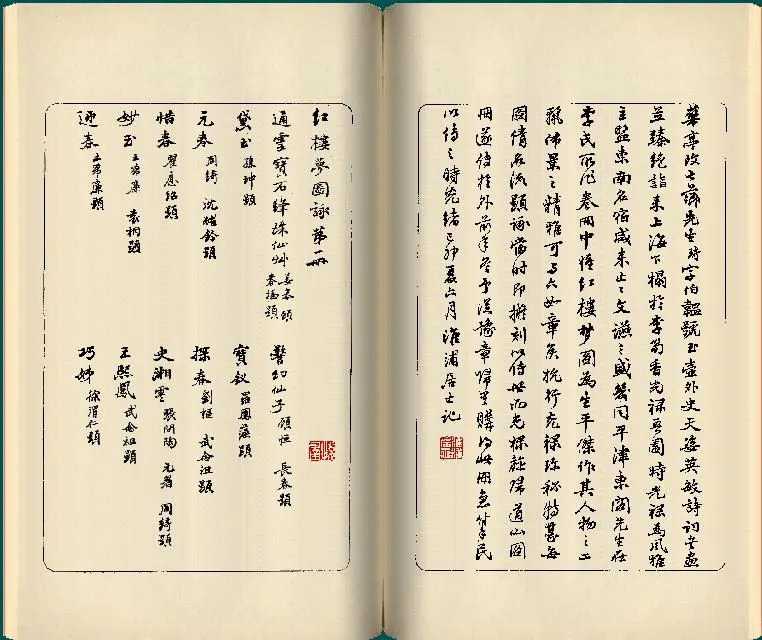 華亭改七薌先生琦字伯韞號玉壺外史天姿英敏詩詞書畫
並臻絕詣來上海下榻於李筍香光祿吾園時光祿為風雅
主盟東南名宿咸來止止文讌之盛幾同平津東閣先生在
李氏所作卷冊中惟紅樓夢圖為生平傑作其人物之工
麗佈景之精雅可與六如章侯抗行光祿珍秘特甚每
圖倩名流題詠當時即擬刻以傳世而光祿旋歸道山圖
冊遂傳於外前年冬予從豫章歸里購得此冊急付手民
以傳之時光緒己卯夏六月淮浦居士記
紅樓夢圖詠第一冊
通靈寶石絳珠仙艸 姜皋題
警幻仙子 顧恒 長春題
黛玉 孫坤題
寶釵 羅鳳藻題
元春 周綺 沈 題
探春 劉樞 武念祖題
惜春 瞿應紹題
史湘雲 張問陶 周綺題
妙玉 王希廉 袁桐題
王熙鳳 武念祖題
迎春 王希廉題
巧姊 徐渭仁題